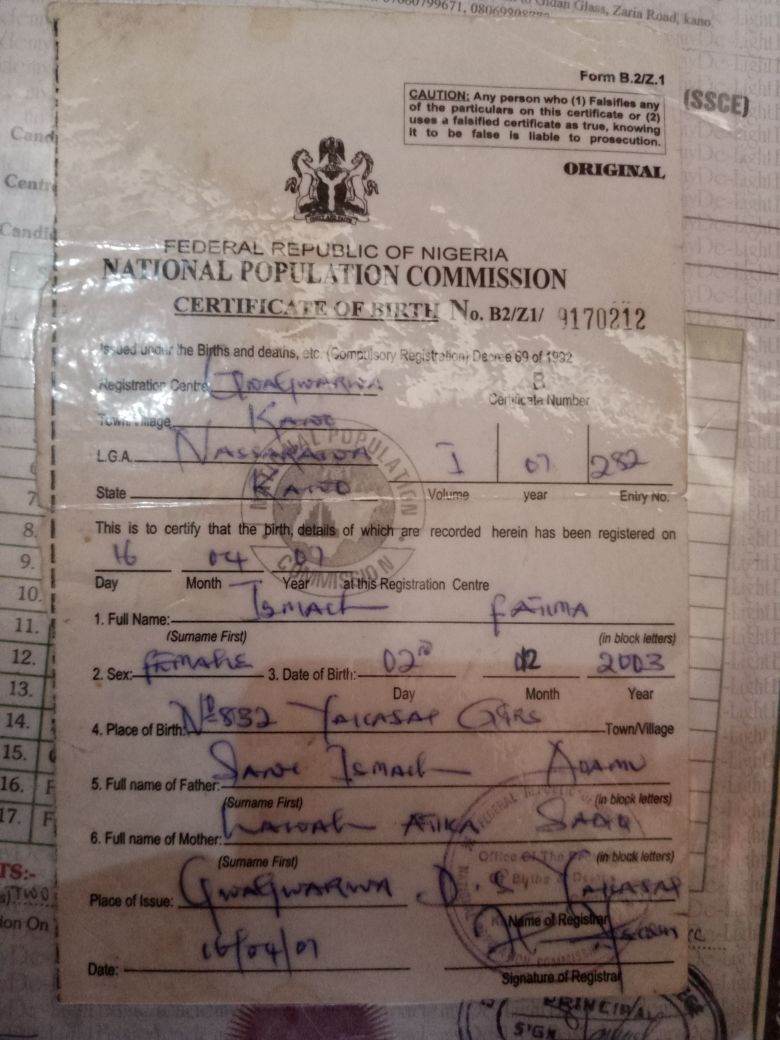 Gidan Glass, Zaria Road, kano
Form B.2/Z.1
(SSCE)
CAUTION: Any person who (1) Falsifies any
of the particulars on this certificate or (2)
uses a falsified certificate as true, knowing
it to be false is liable to prosecution.
ORIGINAL
FEDERAL REPUBLIC OF NIGERIA
NATIONAL POPULATION COMMISSION
CERTIFICATE OF BIRTH No. B2/Z1/ 9170212
Issued under the Births and deaths, etc. (Compulsory Registration) Decree 69 of 1992
Registration Centre GWAGWARWA B
Certificate Number
Town/Village KANO
L.G.A. NASSARAWA I 07 282
State KANO Volume year Entry No.
NATIONAL POPULATION COMMISSION
This is to certify that the birth, details of which are recorded herein has been registered on
16 04 07
Day Month Year at this Registration Centre
1. Full Name: ISMAIL FATIMA
(Surname First) (in block letters)
2. Sex: FEMALE 3. Date of Birth: 02nd 02 2003
Day Month Year
4. Place of Birth: No 832 YAKASAI QTRS Town/Village
5. Full name of Father: SANI ISMAIL ADAMU
(Surname First) (in block letters)
6. Full name of Mother: LAWAL ATIKA SADIQ
(Surname First) (in block letters)
Place of Issue: GWAGWARWA D. S YAKASAI
Name of Registrar
Date: 16/04/07
Signature of Registrar
8.
9.
10.
11.
12.
13.
14.
15.
16.
17.
TS:-
PRINCIPAL
SIGN